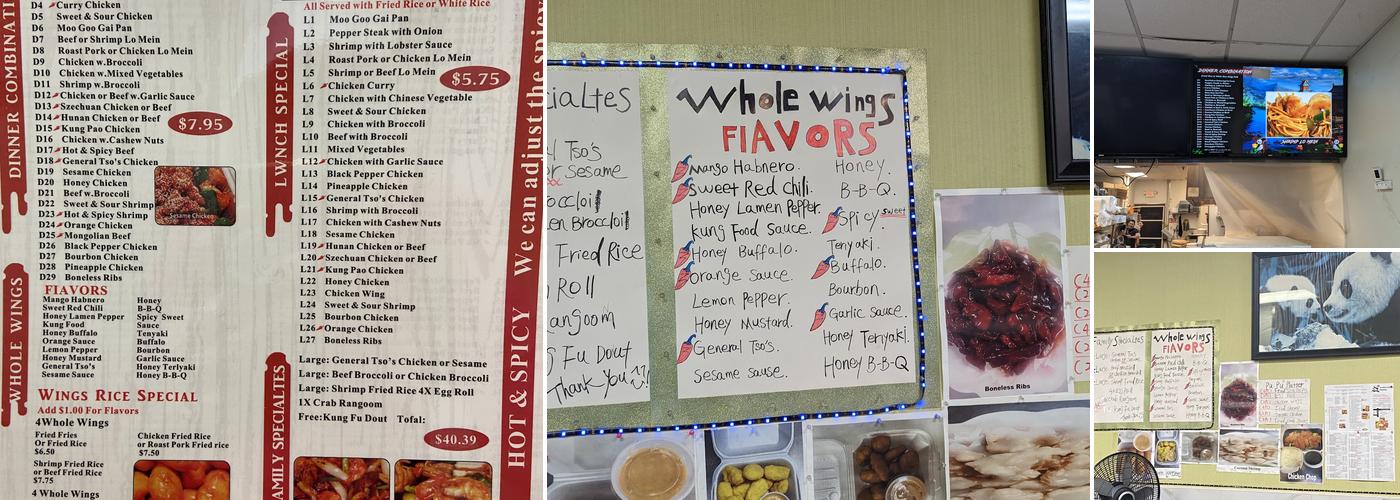 DINNER COMBINATI
D4 Curry Chicken
D5 Sweet & Sour Chicken
D6 Moo Goo Gai Pan
D7 Beef or Shrimp Lo Mein
D8 Roast Pork or Chicken Lo Mein
D9 Chicken w.Broccoli
D10 Chicken w.Mixed Vegetables
D11 Shrimp w.Broccoli
D12 Chicken or Beef w.Garlic Sauce
D13 Szechuan Chicken or Beef
D14 Hunan Chicken or Beef
D15 Kung Pao Chicken
D16 Chicken w.Cashew Nuts
D17 Hot & Spicy Beef
D18 General Tso's Chicken
D19 Sesame Chicken
D20 Honey Chicken
D21 Beef w.Broccoli
D22 Sweet & Sour Shrimp
D23 Hot & Spicy Shrimp
D24 Orange Chicken
D25 Mongolian Beef
D26 Black Pepper Chicken
D27 Bourbon Chicken
D28 Pineapple Chicken
D29 Boneless Ribs
$7.95
Sesame Chicken
WHOLE WINGS
FlAVORS
Mango Habnero Honey
Sweet Red Chili B-B-Q
Honey Lamen Pepper Spicy Sweet
Kung Food Sauce
Honey Buffalo Tenyaki
Orange Sauce Buffalo
Lemon Pepper Bourbon
Honey Mustard Garlic Sauce
General Tso's Honey Terlyaki
Sesame Sauce Honey B-B-Q
WINGS RICE SPECIAL
Add $1.00 For Flavors
4Whole Wings
Fried Fries
Or Fried Rice
$6.50
Chicken Fried Rice
or Roast Pork Fried rice
$7.50
Shrimp Fried Rice
or Beef Fried Rice
$7.75
4 Whole Wings
LWNCH SPECIAL
All Served with Fried Rice or White Rice
L1 Moo Goo Gai Pan
L2 Pepper Steak with Onion
L3 Shrimp with Lobster Sauce
L4 Roast Pork or Chicken Lo Mein
L5 Shrimp or Beef Lo Mein
L6 Chicken Curry
L7 Chicken with Chinese Vegetable
L8 Sweet & Sour Chicken
L9 Chicken with Broccoli
L10 Beef with Broccoli
L11 Mixed Vegetables
L12 Chicken with Garlic Sauce
L13 Black Pepper Chicken
L14 Pineapple Chicken
L15 General Tso's Chicken
L16 Shrimp with Broccoli
L17 Chicken with Cashew Nuts
L18 Sesame Chicken
L19 Hunan Chicken or Beef
L20 Szechuan Chicken or Beef
L21 Kung Pao Chicken
L22 Honey Chicken
L23 Chicken Wing
L24 Sweet & Sour Shrimp
L25 Bourbon Chicken
L26 Orange Chicken
L27 Boneless Ribs
$5.75
AMILY SPECIALTIES
Large: General Tso's Chicken or Sesame
Large: Beef Broccoli or Chicken Broccoli
Large: Shrimp Fried Rice 4X Egg Roll
1X Crab Rangoom
Free:Kung Fu Dout Tofal:
$40.39
HOT & SPICY We can adjust the spicy
cialtes
l Tso's
r Sesame
occloil
en Broccloil
Fried Rice
Roll
angoom
g Fu Dout
Thank You
Whole wings
FlAVORS
Mango Habnero.
Sweet Red Chili.
Honey Lamen Pepper.
Kung Food Sauce.
Honey Buffalo.
Orange Sauce.
Lemon Pepper.
Honey Mustard.
General Tso's.
Sesame sause.
Honey.
B-B-Q.
Spicy sweet
Tenyaki.
Buffalo.
Bourbon.
Garlic sauce.
Honey Teriyaki.
Honey B-B-Q
Boneless Ribs
DINNER COMBINATION
SHRIMP LO MEIN
Family Specialtes
Whole Wings
FlAVORS
Pu Pu Platter
Chicken Chop